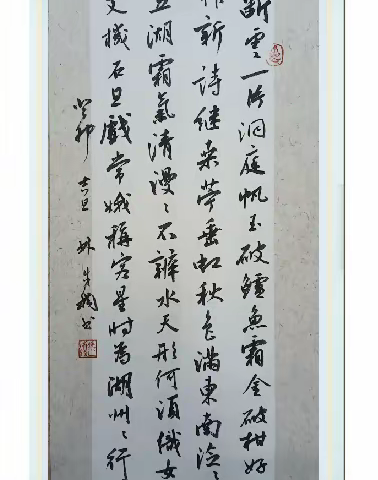 斷雲一片洞庭帆玉破鱸魚霜金破柑好
作新詩継桑苧垂虹秋色滿東南泛〻
五湖霜氣清漫〻不辨水天形何須織女
支機石且戲常娥稱客星時為湖州〻行
癸卯吉旦林書